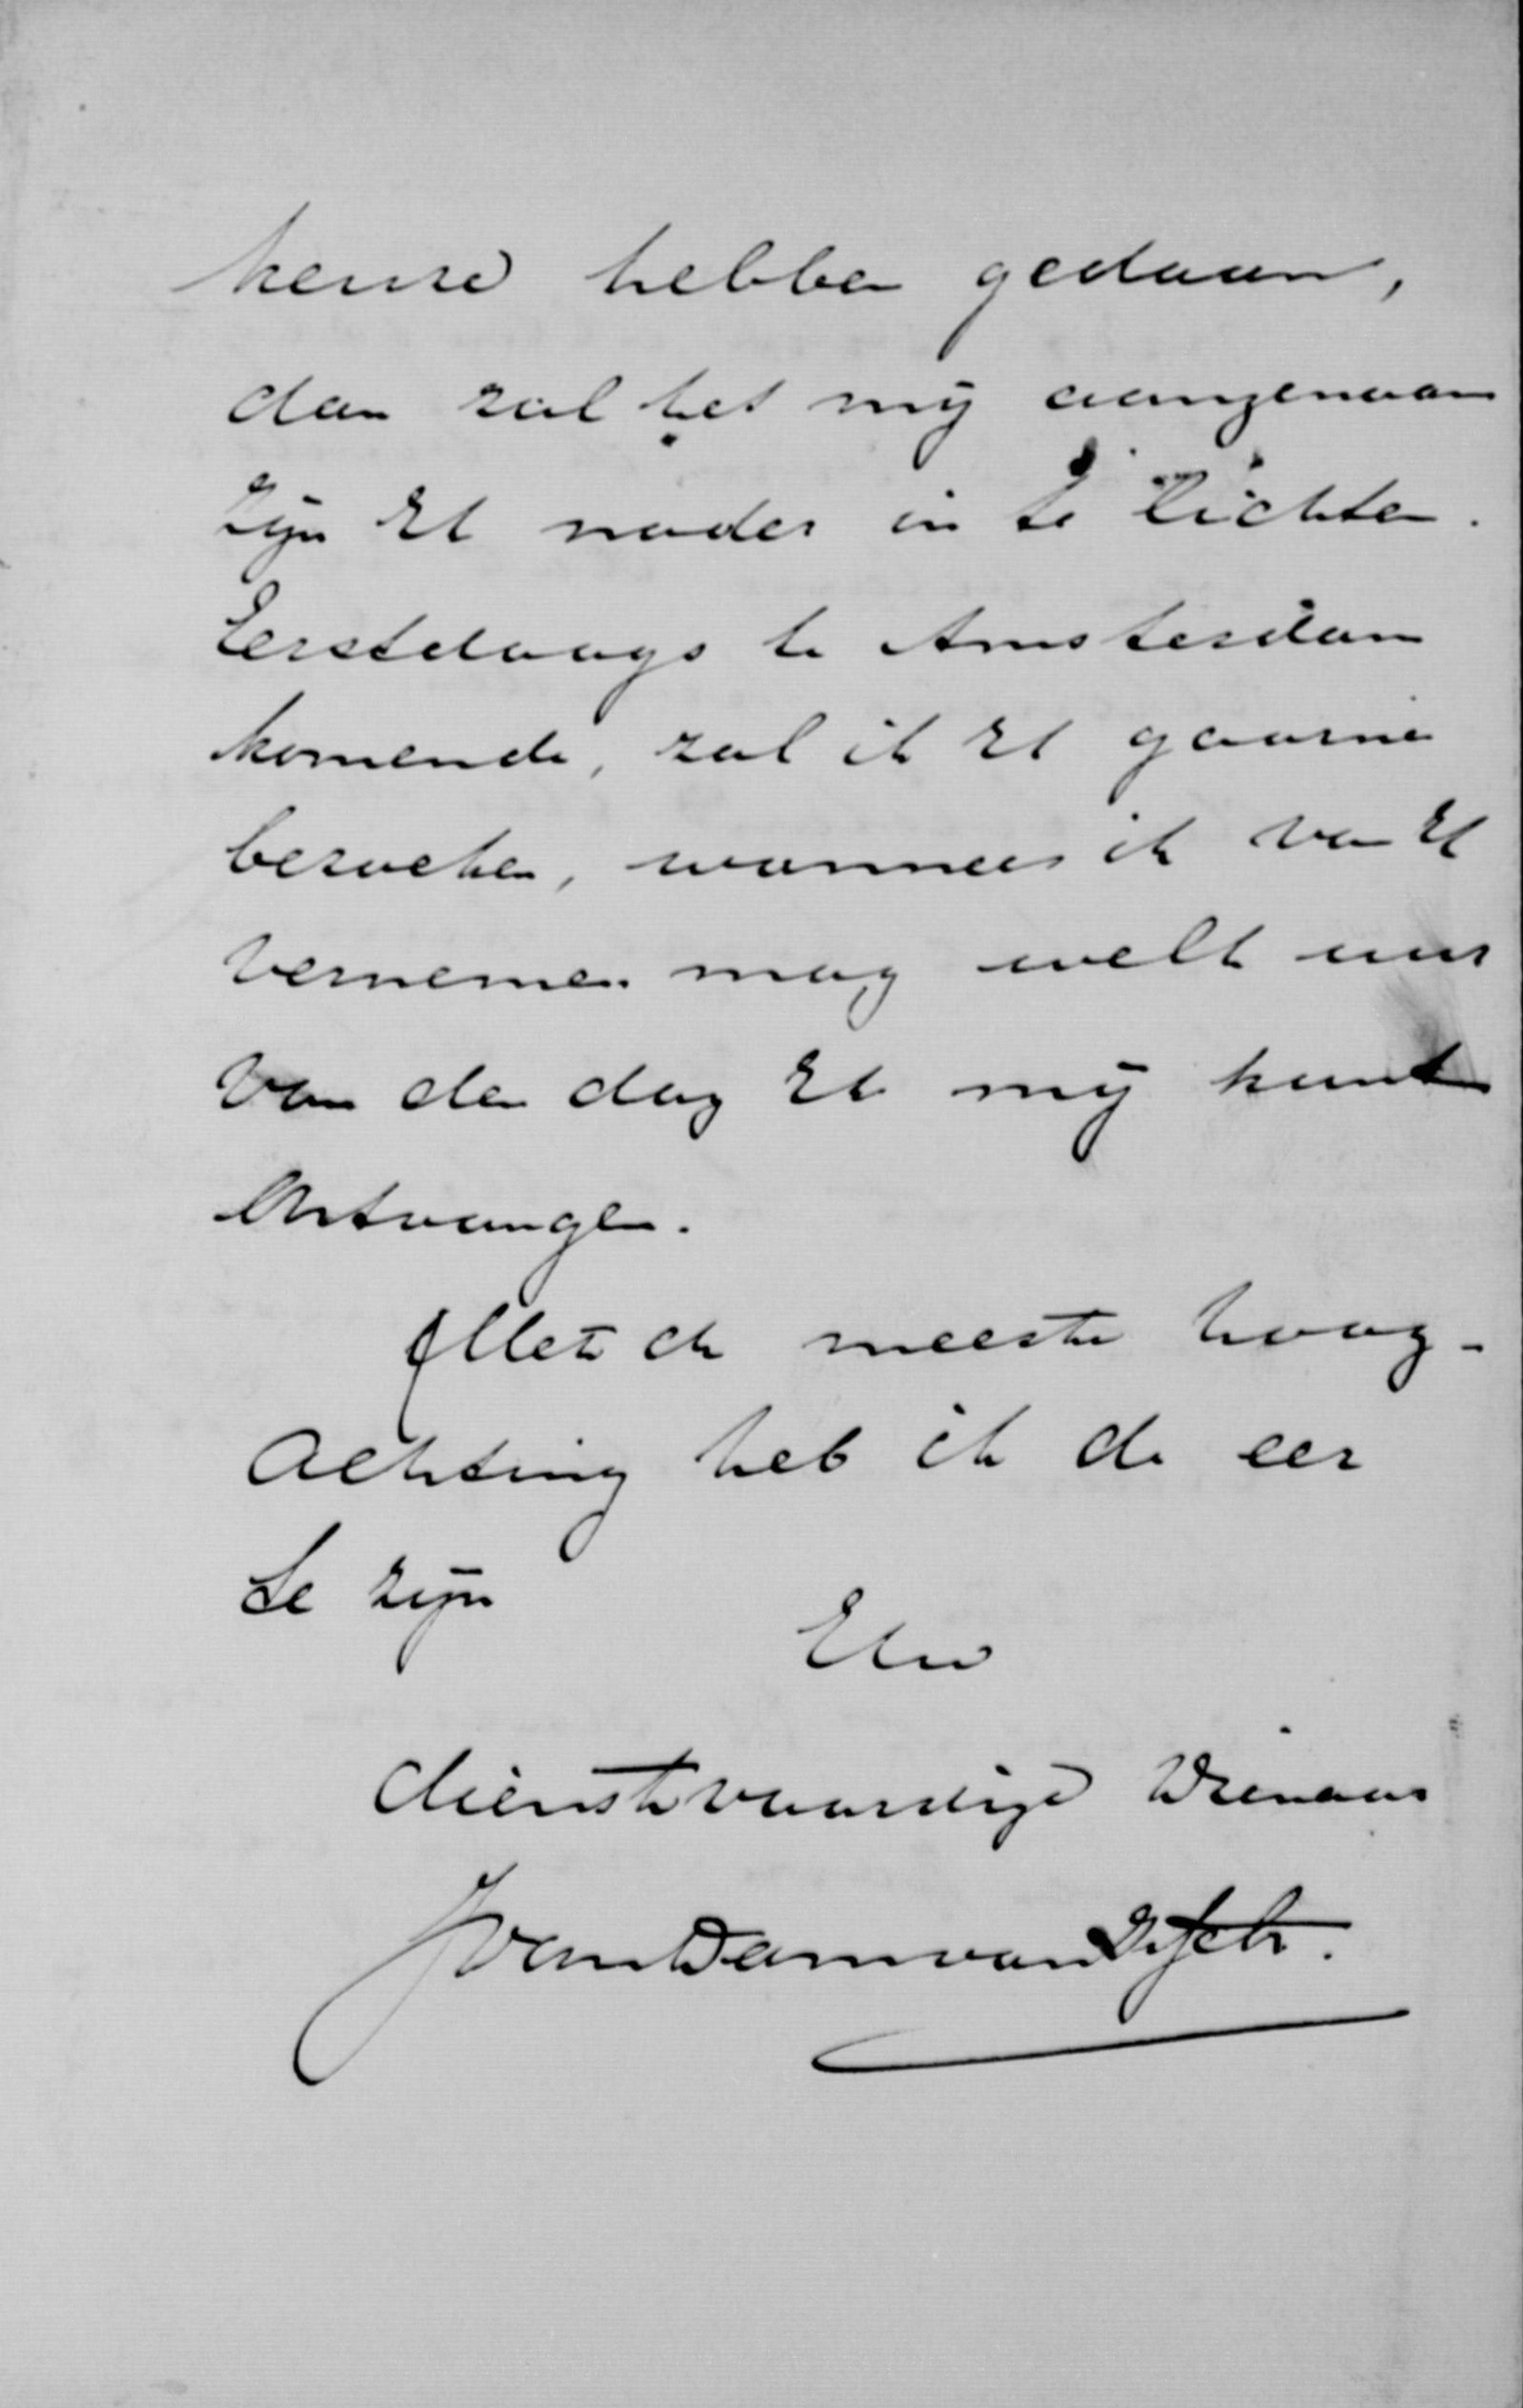 keuze hebben gedaan,
dan zal het mij aangenaam
zijn U nader in te lichten.
Eerstdaags te Amsterdam
komende, zal ik U gaarne
bezoeken, wanneer ik van U
vernemen mag welk uur
van den dag U mij kunt
ontvangen.
Met de meeste hoog-
achting heb ik de eer
te zijn
Uw
dienstvaardige Dienaar
J van Dam van Isselt.